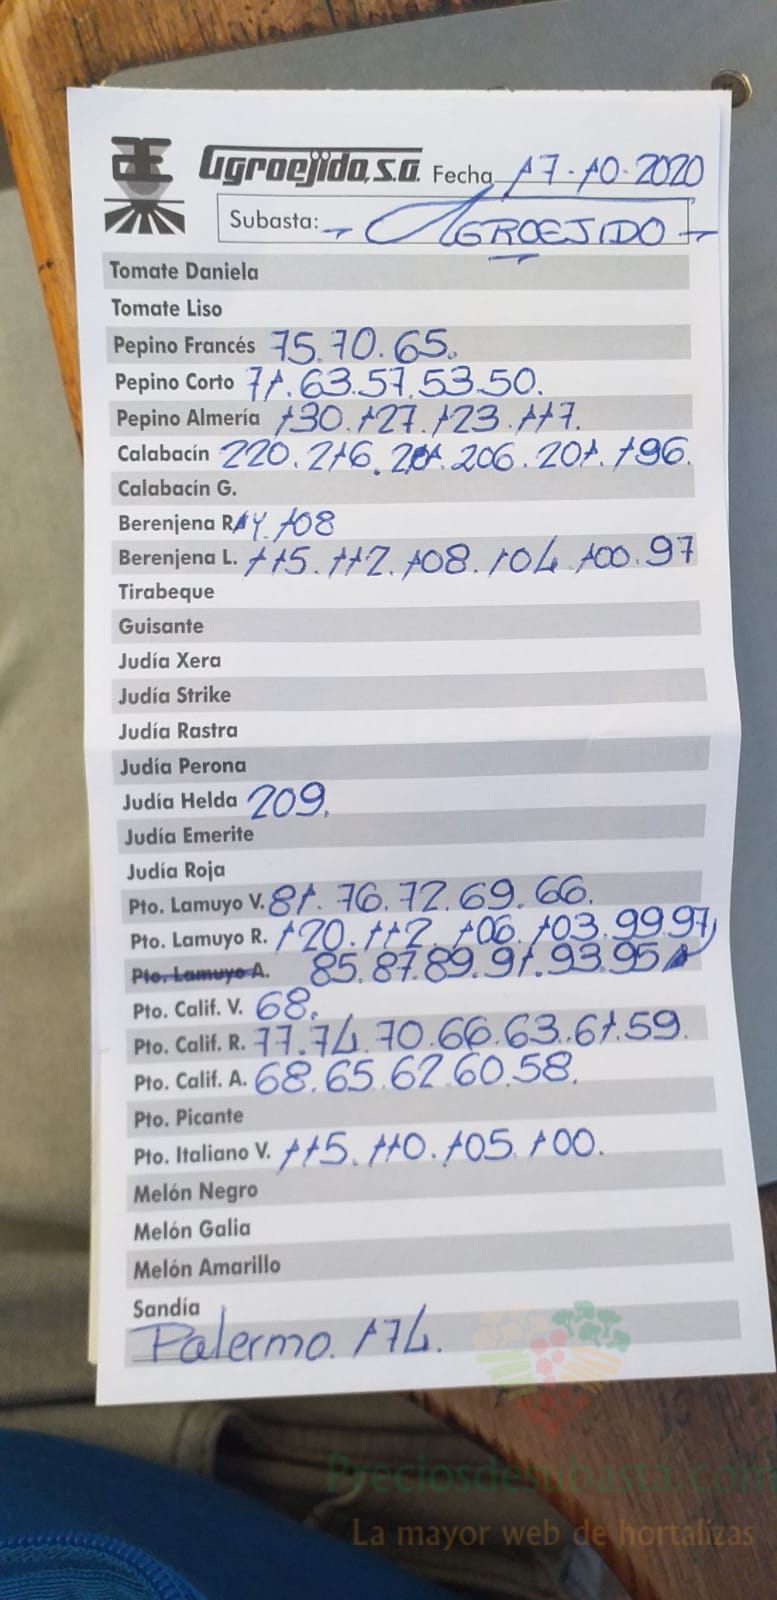 Agroejido, S.A. Fecha 17-10-2020
Subasta: - AGROEJIDO -
Tomate Daniela
Tomate Liso
Pepino Francés 75.70.65.
Pepino Corto 71.63.57.53.50.
Pepino Almería 130.127.123.117.
Calabacín 220.216. 206.201.196.
Calabacín G.
Berenjena R. 108
Berenjena L. 115.112.108.104.100.97
Tirabeque
Guisante
Judía Xera
Judía Strike
Judía Rastra
Judía Perona
Judía Helda 209.
Judía Emerite
Judía Roja
Pto. Lamuyo V. 81.76.72.69.66.
Pto. Lamuyo R. 120.112.106.103.99.97
Pto. Lamuyo A. 85.87.89.91.93.95
Pto. Calif. V. 68.
Pto. Calif. R. 77.74.70.66.63.61.59.
Pto. Calif. A. 68.65.62.60.58.
Pto. Picante
Pto. Italiano V. 115.110.105.100.
Melón Negro
Melón Galia
Melón Amarillo
Sandía
Palermo. 174.
Preciosdesubasta.com
La mayor web de hortalizas